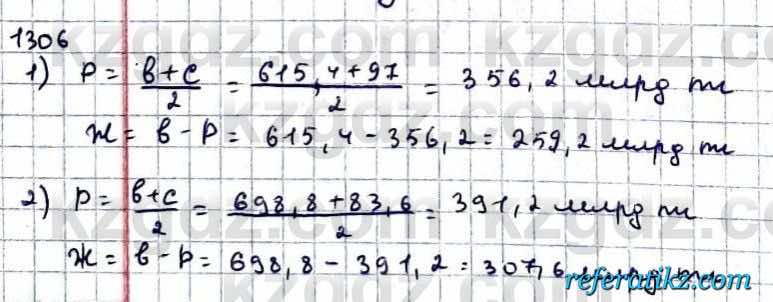 1306
1) P = (в+с)/2 = (615,4+97)/2 = 356,2 млрд тг
Ж = в - P = 615,4 - 356,2 = 259,2 млрд тг
2) P = (в+с)/2 = (698,8+83,6)/2 = 391,2 млрд тг
Ж = в - P = 698,8 - 391,2 = 307,6 млрд тг
referatikz.com